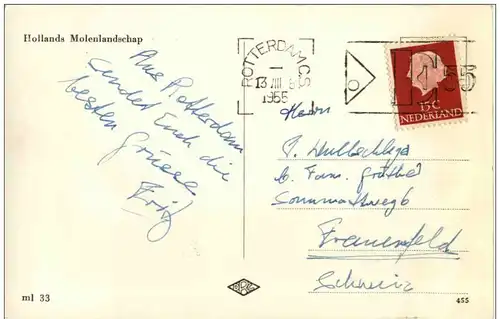 Hollands Molenlandschap
Aus Rotterdam
sendet Euch die
besten
Grüsse
Fritz
ROTTERDAM C.S.
13 VIII
1955
E 55
15 C
NEDERLAND
Herrn
b. Fam.
Sommerstweg 6
Frauenfeld
Schweiz
ml 33
455